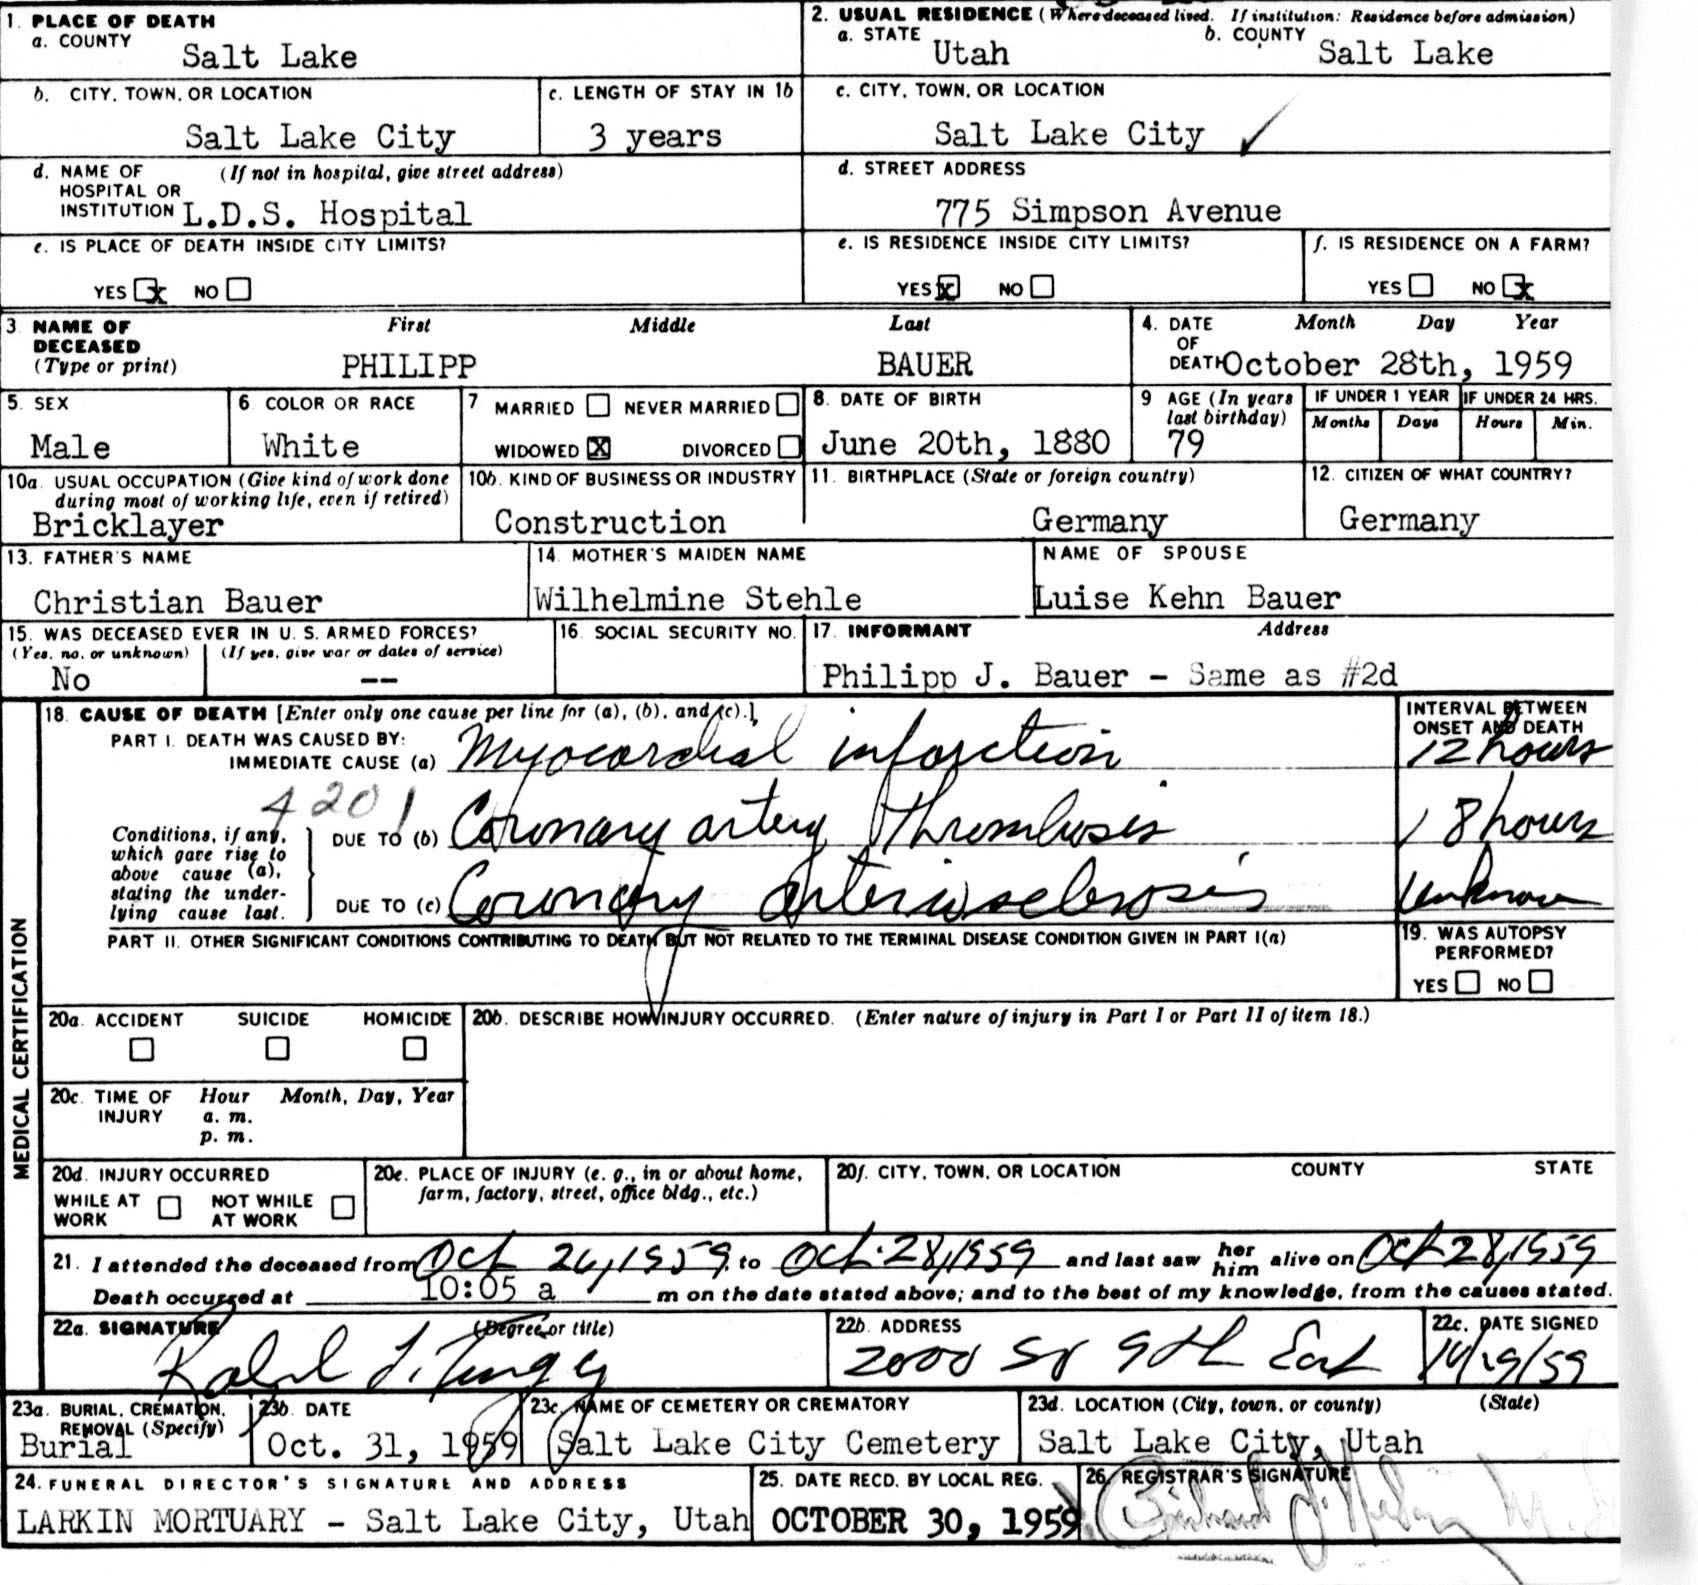 1. PLACE OF DEATH
a. COUNTY
Salt Lake
2. USUAL RESIDENCE (Where deceased lived. If institution: Residence before admission)
a. STATE Utah b. COUNTY Salt Lake
b. CITY, TOWN, OR LOCATION
Salt Lake City
c. LENGTH OF STAY IN 1b
3 years
c. CITY, TOWN, OR LOCATION
Salt Lake City
d. NAME OF (If not in hospital, give street address)
HOSPITAL OR
INSTITUTION L.D.S. Hospital
d. STREET ADDRESS
775 Simpson Avenue
e. IS PLACE OF DEATH INSIDE CITY LIMITS?
YES x NO
e. IS RESIDENCE INSIDE CITY LIMITS?
YES x NO
f. IS RESIDENCE ON A FARM?
YES NO x
3. NAME OF DECEASED
(Type or print)
First Middle Last
PHILIPP BAUER
4. DATE OF DEATH Month Day Year
October 28th, 1959
5. SEX
Male
6. COLOR OR RACE
White
7 MARRIED NEVER MARRIED
WIDOWED X DIVORCED
8. DATE OF BIRTH
June 20th, 1880
9 AGE (In years last birthday)
79
IF UNDER 1 YEAR IF UNDER 24 HRS.
Months Days Hours Min.
10a. USUAL OCCUPATION (Give kind of work done
during most of working life, even if retired)
Bricklayer
10b. KIND OF BUSINESS OR INDUSTRY
Construction
11. BIRTHPLACE (State or foreign country)
Germany
12. CITIZEN OF WHAT COUNTRY?
Germany
13. FATHER'S NAME
Christian Bauer
14. MOTHER'S MAIDEN NAME
Wilhelmine Stehle
NAME OF SPOUSE
Luise Kehn Bauer
15. WAS DECEASED EVER IN U. S. ARMED FORCES?
(Yes, no, or unknown) (If yes, give war or dates of service)
No --
16. SOCIAL SECURITY NO.
17. INFORMANT Address
Philipp J. Bauer - Same as #2d
MEDICAL CERTIFICATION
18. CAUSE OF DEATH [Enter only one cause per line for (a), (b), and (c).]
PART I. DEATH WAS CAUSED BY:
IMMEDIATE CAUSE (a) Myocardial infarction
INTERVAL BETWEEN
ONSET AND DEATH
12 hours
4201
Conditions, if any,
which gave rise to
above cause (a),
stating the under-
lying cause last.
DUE TO (b) Coronary artery Thrombosis
18 hours
DUE TO (c) Coronary arteriosclerosis
Unknown
PART II. OTHER SIGNIFICANT CONDITIONS CONTRIBUTING TO DEATH BUT NOT RELATED TO THE TERMINAL DISEASE CONDITION GIVEN IN PART I(a)
19. WAS AUTOPSY
PERFORMED?
YES NO
20a. ACCIDENT SUICIDE HOMICIDE
20b. DESCRIBE HOW INJURY OCCURRED. (Enter nature of injury in Part I or Part II of item 18.)
20c. TIME OF INJURY Hour Month, Day, Year
a. m.
p. m.
20d. INJURY OCCURRED
WHILE AT WORK NOT WHILE AT WORK
20e. PLACE OF INJURY (e. g., in or about home,
farm, factory, street, office bldg., etc.)
20f. CITY, TOWN, OR LOCATION COUNTY STATE
21. I attended the deceased from Oct 26, 1959, to Oct. 28, 1959 and last saw her him alive on Oct 28, 1959
Death occurred at 10:05 a m on the date stated above; and to the best of my knowledge, from the causes stated.
22a. SIGNATURE (Degree or title)
Ralph
22b. ADDRESS
2000 So 9th East
22c. DATE SIGNED
10/29/59
23a. BURIAL, CREMATION,
REMOVAL (Specify)
Burial
23b. DATE
Oct. 31, 1959
23c. NAME OF CEMETERY OR CREMATORY
Salt Lake City Cemetery
23d. LOCATION (City, town, or county) (State)
Salt Lake City, Utah
24. FUNERAL DIRECTOR'S SIGNATURE AND ADDRESS
LARKIN MORTUARY - Salt Lake City, Utah
25. DATE RECD. BY LOCAL REG.
OCTOBER 30, 1959
26. REGISTRAR'S SIGNATURE